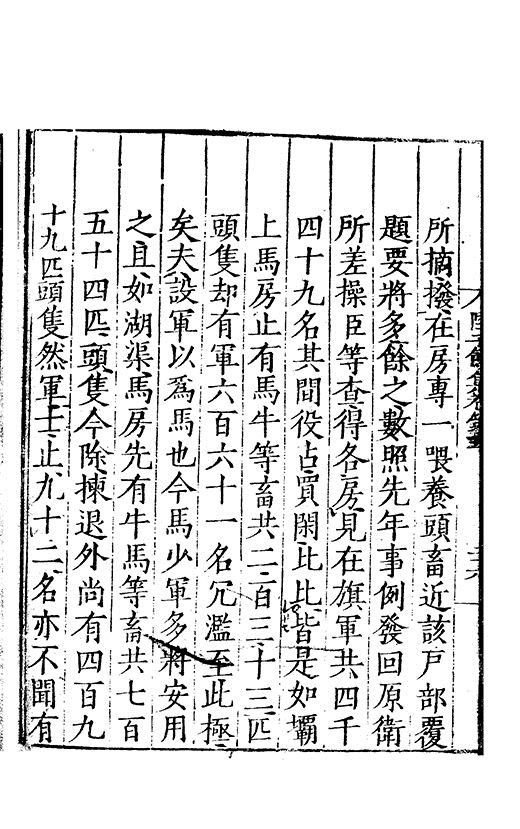 所摘撥在房專一喂養頭畜近該戸部覆
題要將多餘之數照先年事例發回原衛
所差操臣等查得各房見在旗軍共四千
四十九名其間役占買閑比比皆是如壩
上馬房止有馬牛等畜共二百三十三匹
頭隻却有軍六百六十一名冗濫至此極
矣夫設軍以爲馬也今馬少軍多將安用
之且如湖渠馬房先有牛馬等畜共七百
五十四匹頭隻今除揀退外尚有四百九
十九匹頭隻然軍士止九十二名亦不聞有